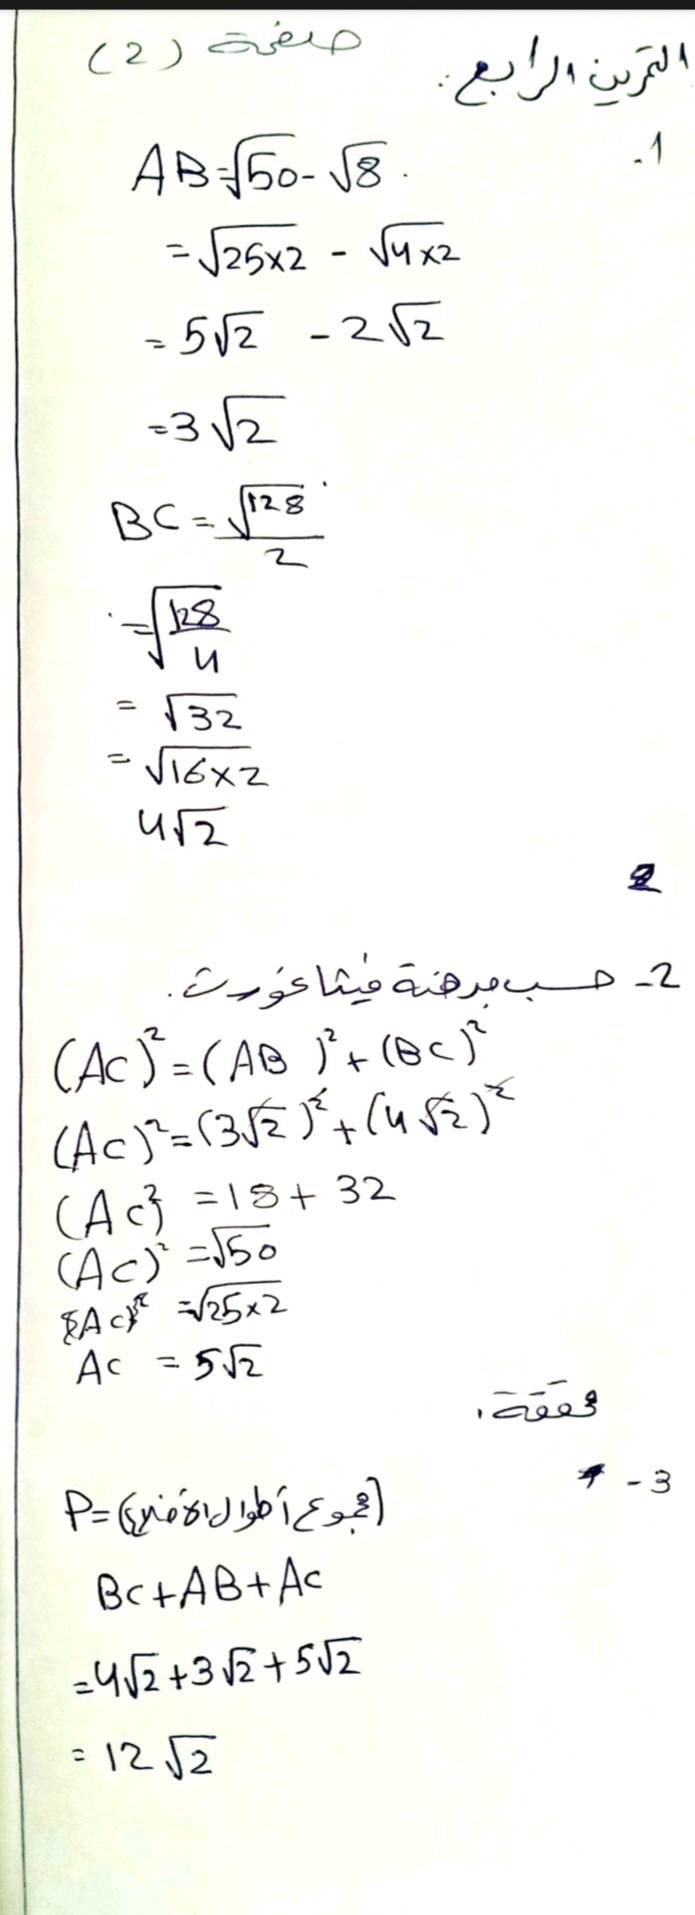 صفحة (2)
التمرين الرابع:
1.
AB=√50-√8.
=√25×2 - √4×2
= 5√2 - 2√2
=3√2
BC=√128/2
=√128/4
= √32
= √16×2
4√2
2
2- حسب مبرهنة فيثاغورث.
(AC)²=(AB)²+(BC)²
(AC)²=(3√2)²+(4√2)²
(AC)² =18+ 32
(AC)² =√50
(AC)² =√25×2
AC = 5√2
محققة.
3-
P=(مجموع أطوال الأضلاع)
BC+AB+AC
=4√2+3√2+5√2
= 12√2